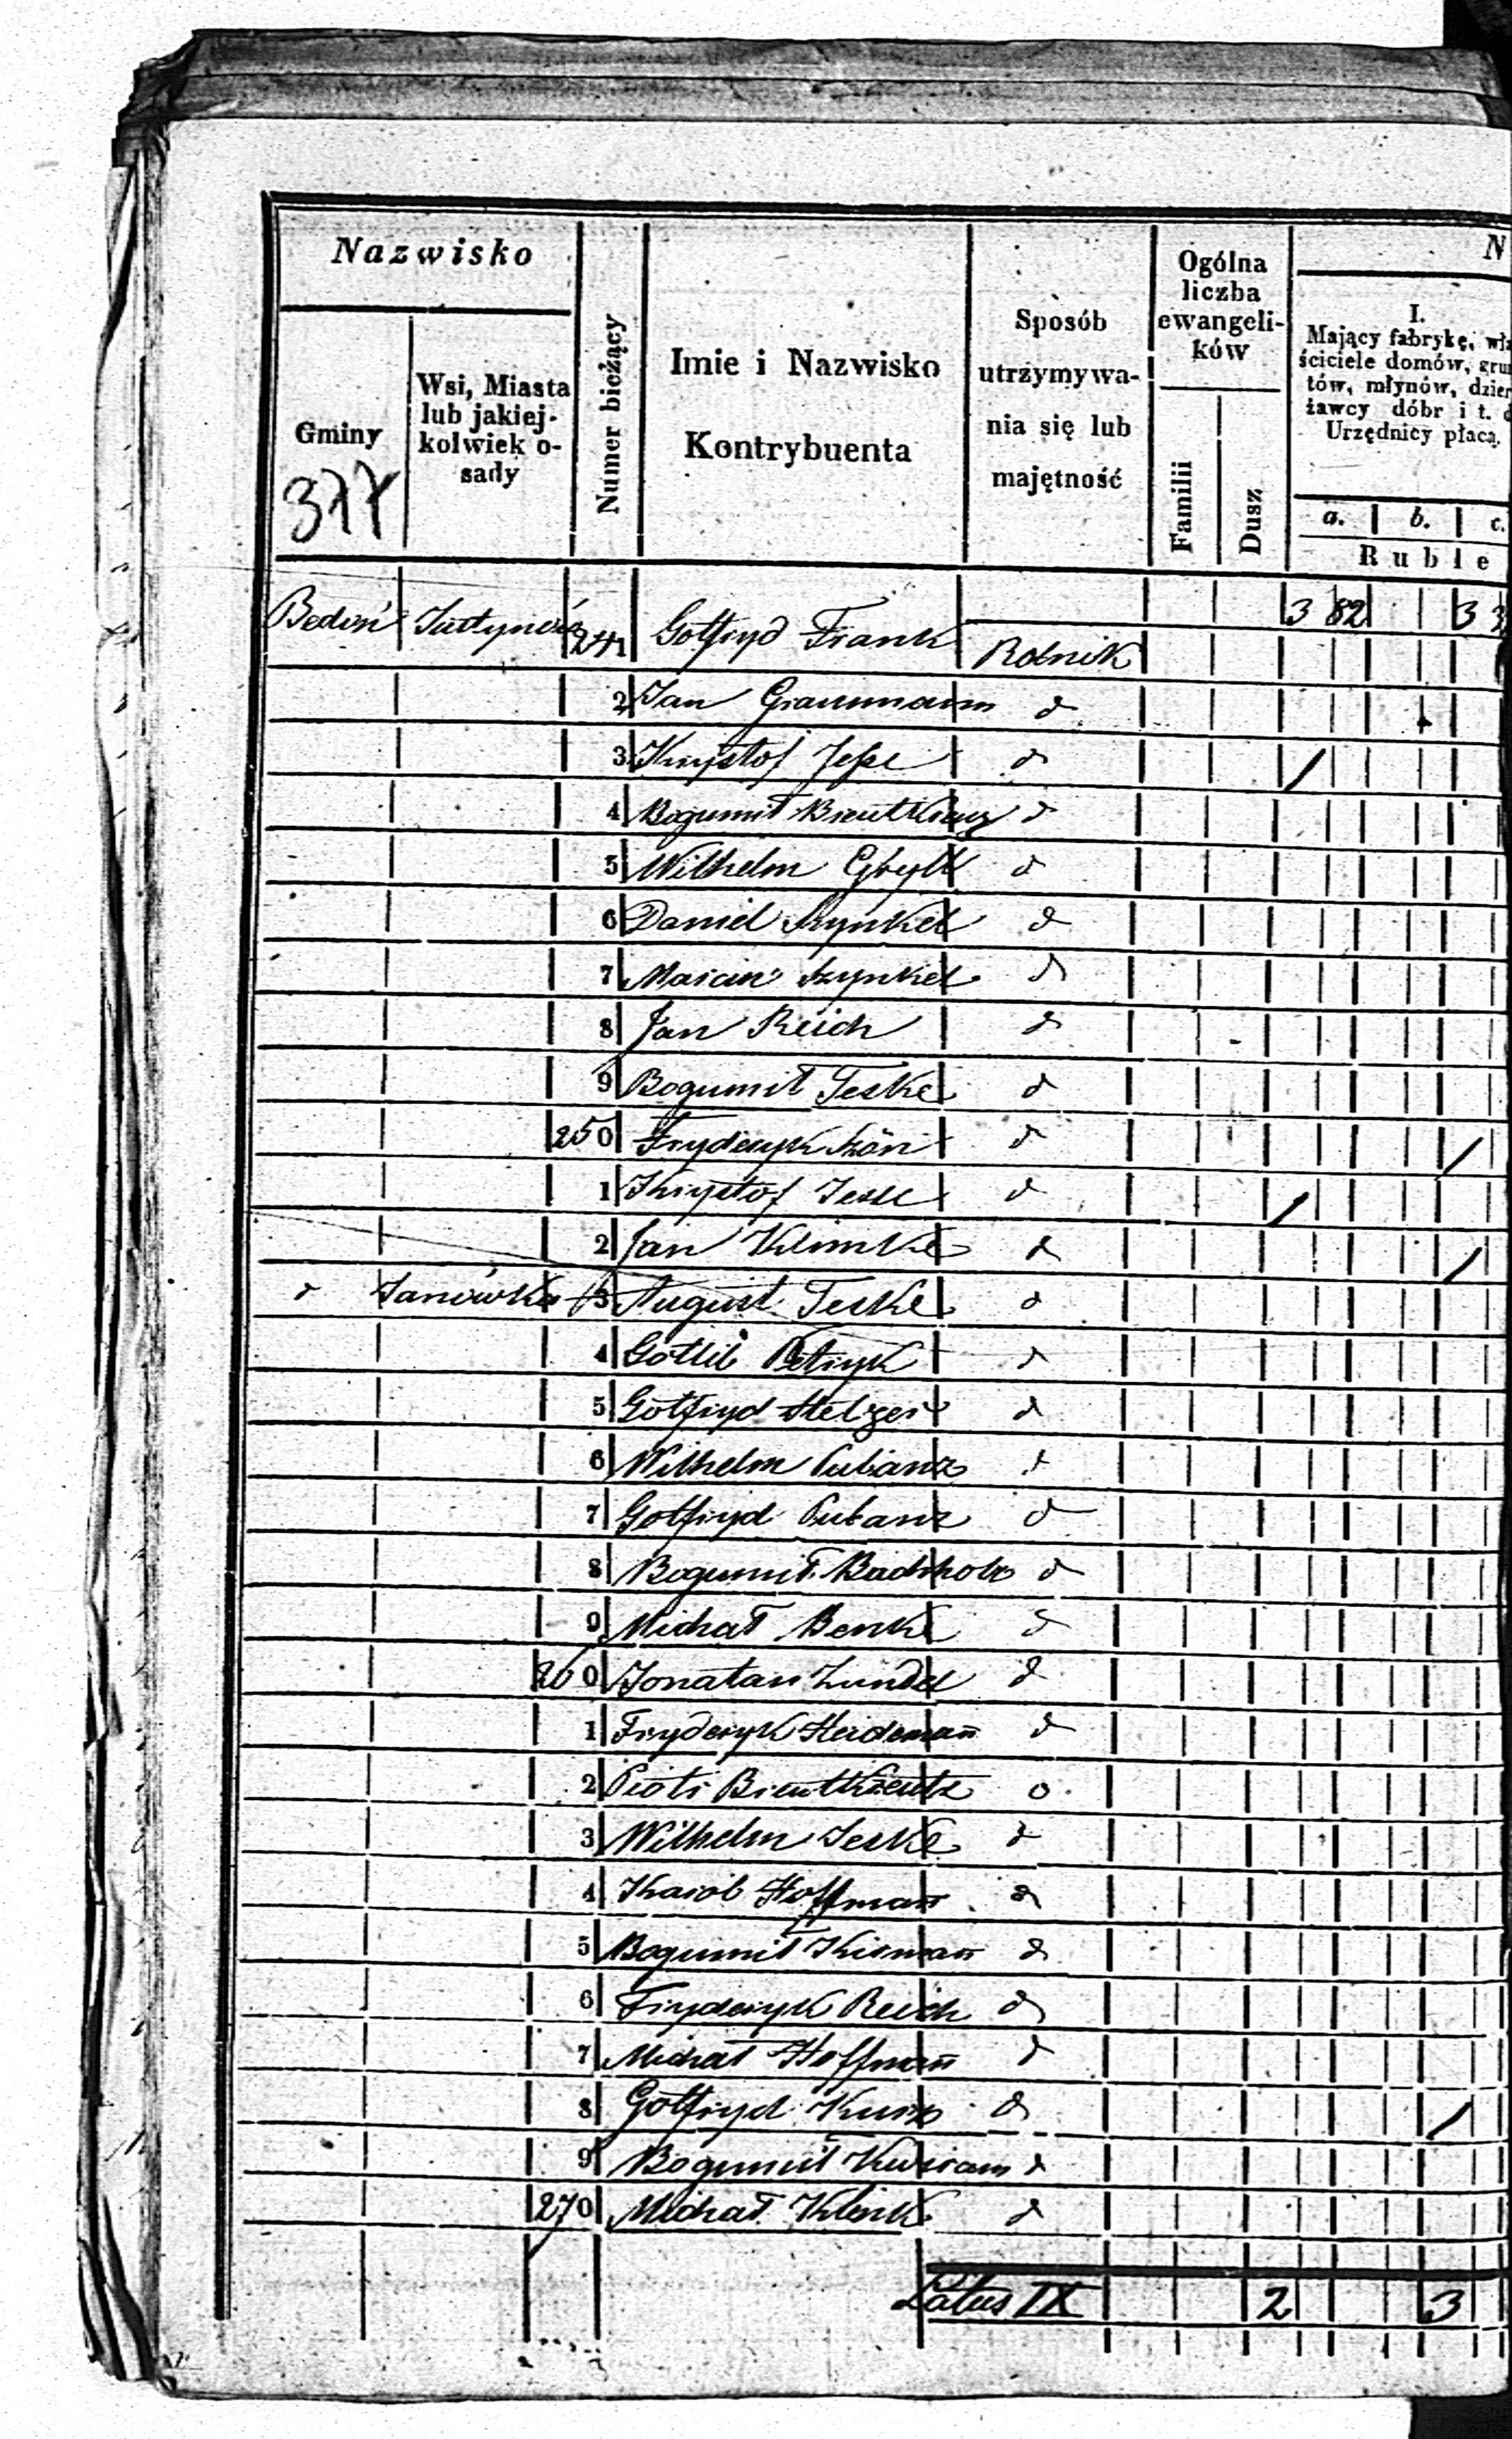 Nazwisko
Gminy
377
Wsi, Miasta
lub jakiej-
kolwiek o-
sady
Numer bieżący
Imie i Nazwisko
Kontrybuenta
Sposób
utrzymywa-
nia się lub
majętność
Ogólna
liczba
ewangeli-
ków
Familii
Dusz
N
I.
Mający fabrykę, wła
ściciele domów, grun
tów, młynów, dzier
żawcy dóbr i t. d
Urzędnicy płacą.
a. b. c.
Ruble
Bedoń 241 Gotfryd Frank Rolnik 3 82 3 3
2 Jan Graumann d
3 Krysztof Jesse d /
4 Bogumił d
5 Wilhelm d
6 Daniel Szynkel d
7 Marcin Szynkel d
8 Jan Reich d
9 Bogumił Teske d
250 Fryderyk Szön d /
1 Krysztof Jeske d /
2 Jan Klimke d /
d Janówka 3 August Teske d
4 Gottlib Petryk d
5 Gotfryd Stelzer d
6 Wilhelm Pubanz d
7 Gotfryd Pubanz d
8 Bogumił Badtholz d
9 Michał Benke d
260 Jonatan Zundel d
1 Fryderyk Heideman̄ d
2 Piotr d
3 Wilhelm Jeske d
4 Karol Hoffman̄ d
5 Bogumił Kisman̄ d
6 Fryderyk Reich d
7 Michał Hoffman̄ d
8 Gotfryd Kurz d /
9 Bogumił Kwiram d
270 Michał Klenk d
Latus IX 2 3